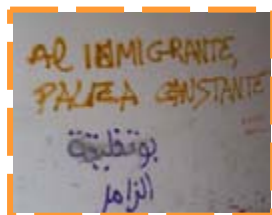 AL INMIGRANTE,
PALIZA CONSTANTE
بوتظليقة
الزامل